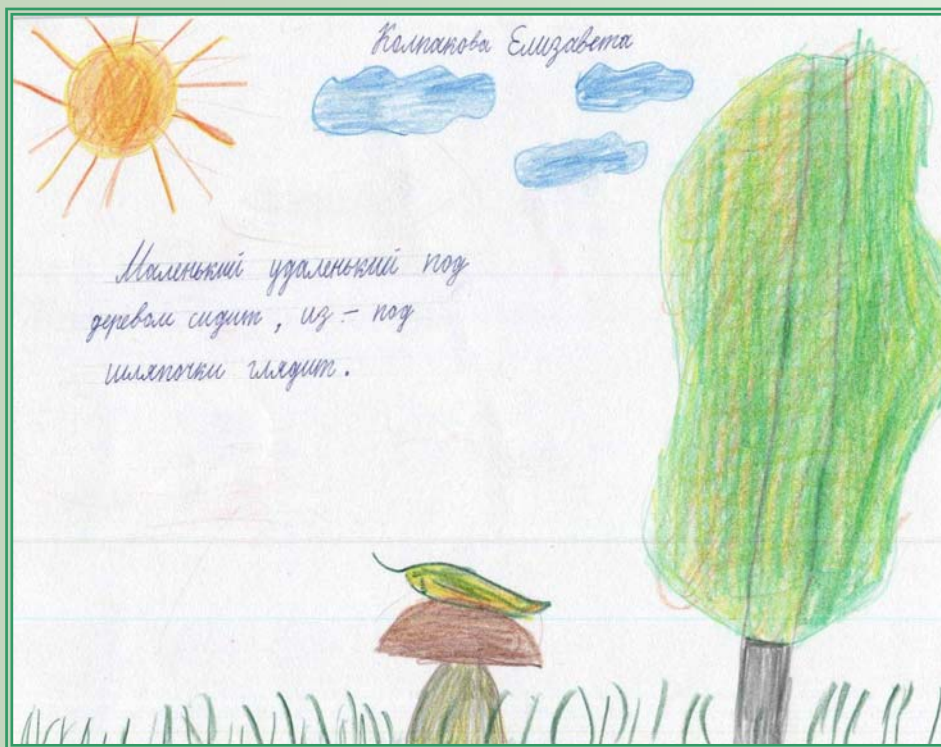 Колпакова Елизавета
Маленький удаленький под
деревом сидит, из - под
шляпочки глядит.